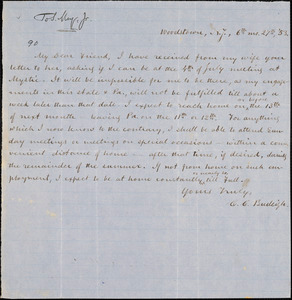 To S. May, Jr.
Woodstown, N.J., 6th mo. 27th, '53.
90
My Dear Friend, I have received from my wife your
letter to her, asking if I can be at the 4th of July meeting at
Mystic. It will be impossible for me to be there, as my engage-
ments in this state & Pa. will not be fulfilled till about a
week later than that date. I expect to reach home on the 13th
of next month — leaving Pa on the 11th or 12th. For anything
which I now know to the contrary, I shall be able to attend Sun-
day meetings or meetings on special occasions — within a con-
venient distance of home — after that time, if desired, during
the remainder of the summer. If not from home on such em-
ployment, I expect to be at home constantly, till Fall.
Yours Truly,
C. C. Burleigh.